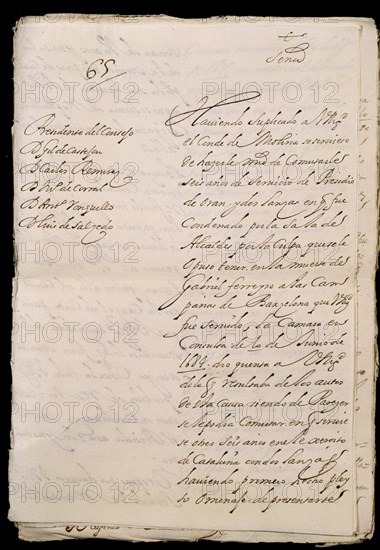 65
Señor
Presidente del Consejo
D Gil de Castejon
D Carlos Ramirez
D de Corral
D Anto Ronquillo
D Luis de Salzedo
Haviendo suplicado a V Mgd
el Conde de Molina se sirviese
de hazerle mrd de Comutarle
seis años de servicio de Presidio
de Oran y dos lanzas en q fue
Condenado por la sala de
Alcaldes por la Culpa que se le
opuso tener en la muerte de
Gabriel ferreyro a las Cam
pañas de Barzelona que V Mgd
fue servido, y la Camara en
Consulta de de Junio de
1684 dio quenta a V Mgd
de lo q resultava de los autos
de esta Causa siendo de Parezer
se le podia Comutar en q sirviese
ochos seis años en el exercito
de Cataluña con dos lanzas
haviendo primero hecho pley
to omenaje de presentarse